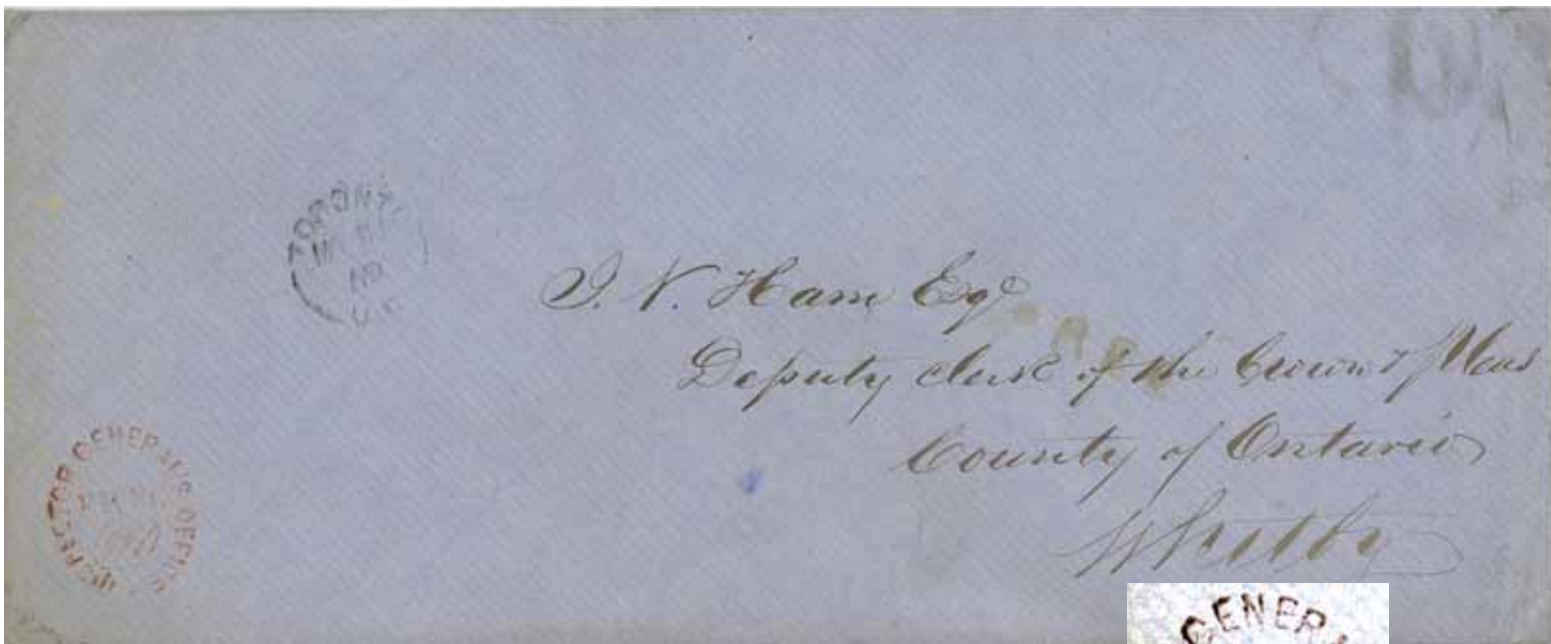 TORONTO
U.C.
J. V. Ham Esqe
Deputy clerk of the Crown & Pleas
County of Ontario
Whitby
INSPECTOR GENERAL'S OFFICE
GENERA